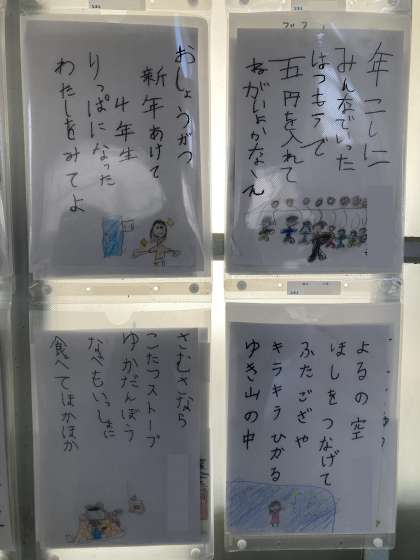 年こしに
みんなでいった
はつもうで
五円を入れて
ねがいよかなえ
おしょうがつ
新年あけて
4年生
りっぱになった
わたしをみてよ
よるの空
ほしをつなげて
ふたござや
キラキラひかる
ゆき山の中
さむさなら
こたつストーブ
ゆかだんぼう
なべもいっしょに
食べてほかほか